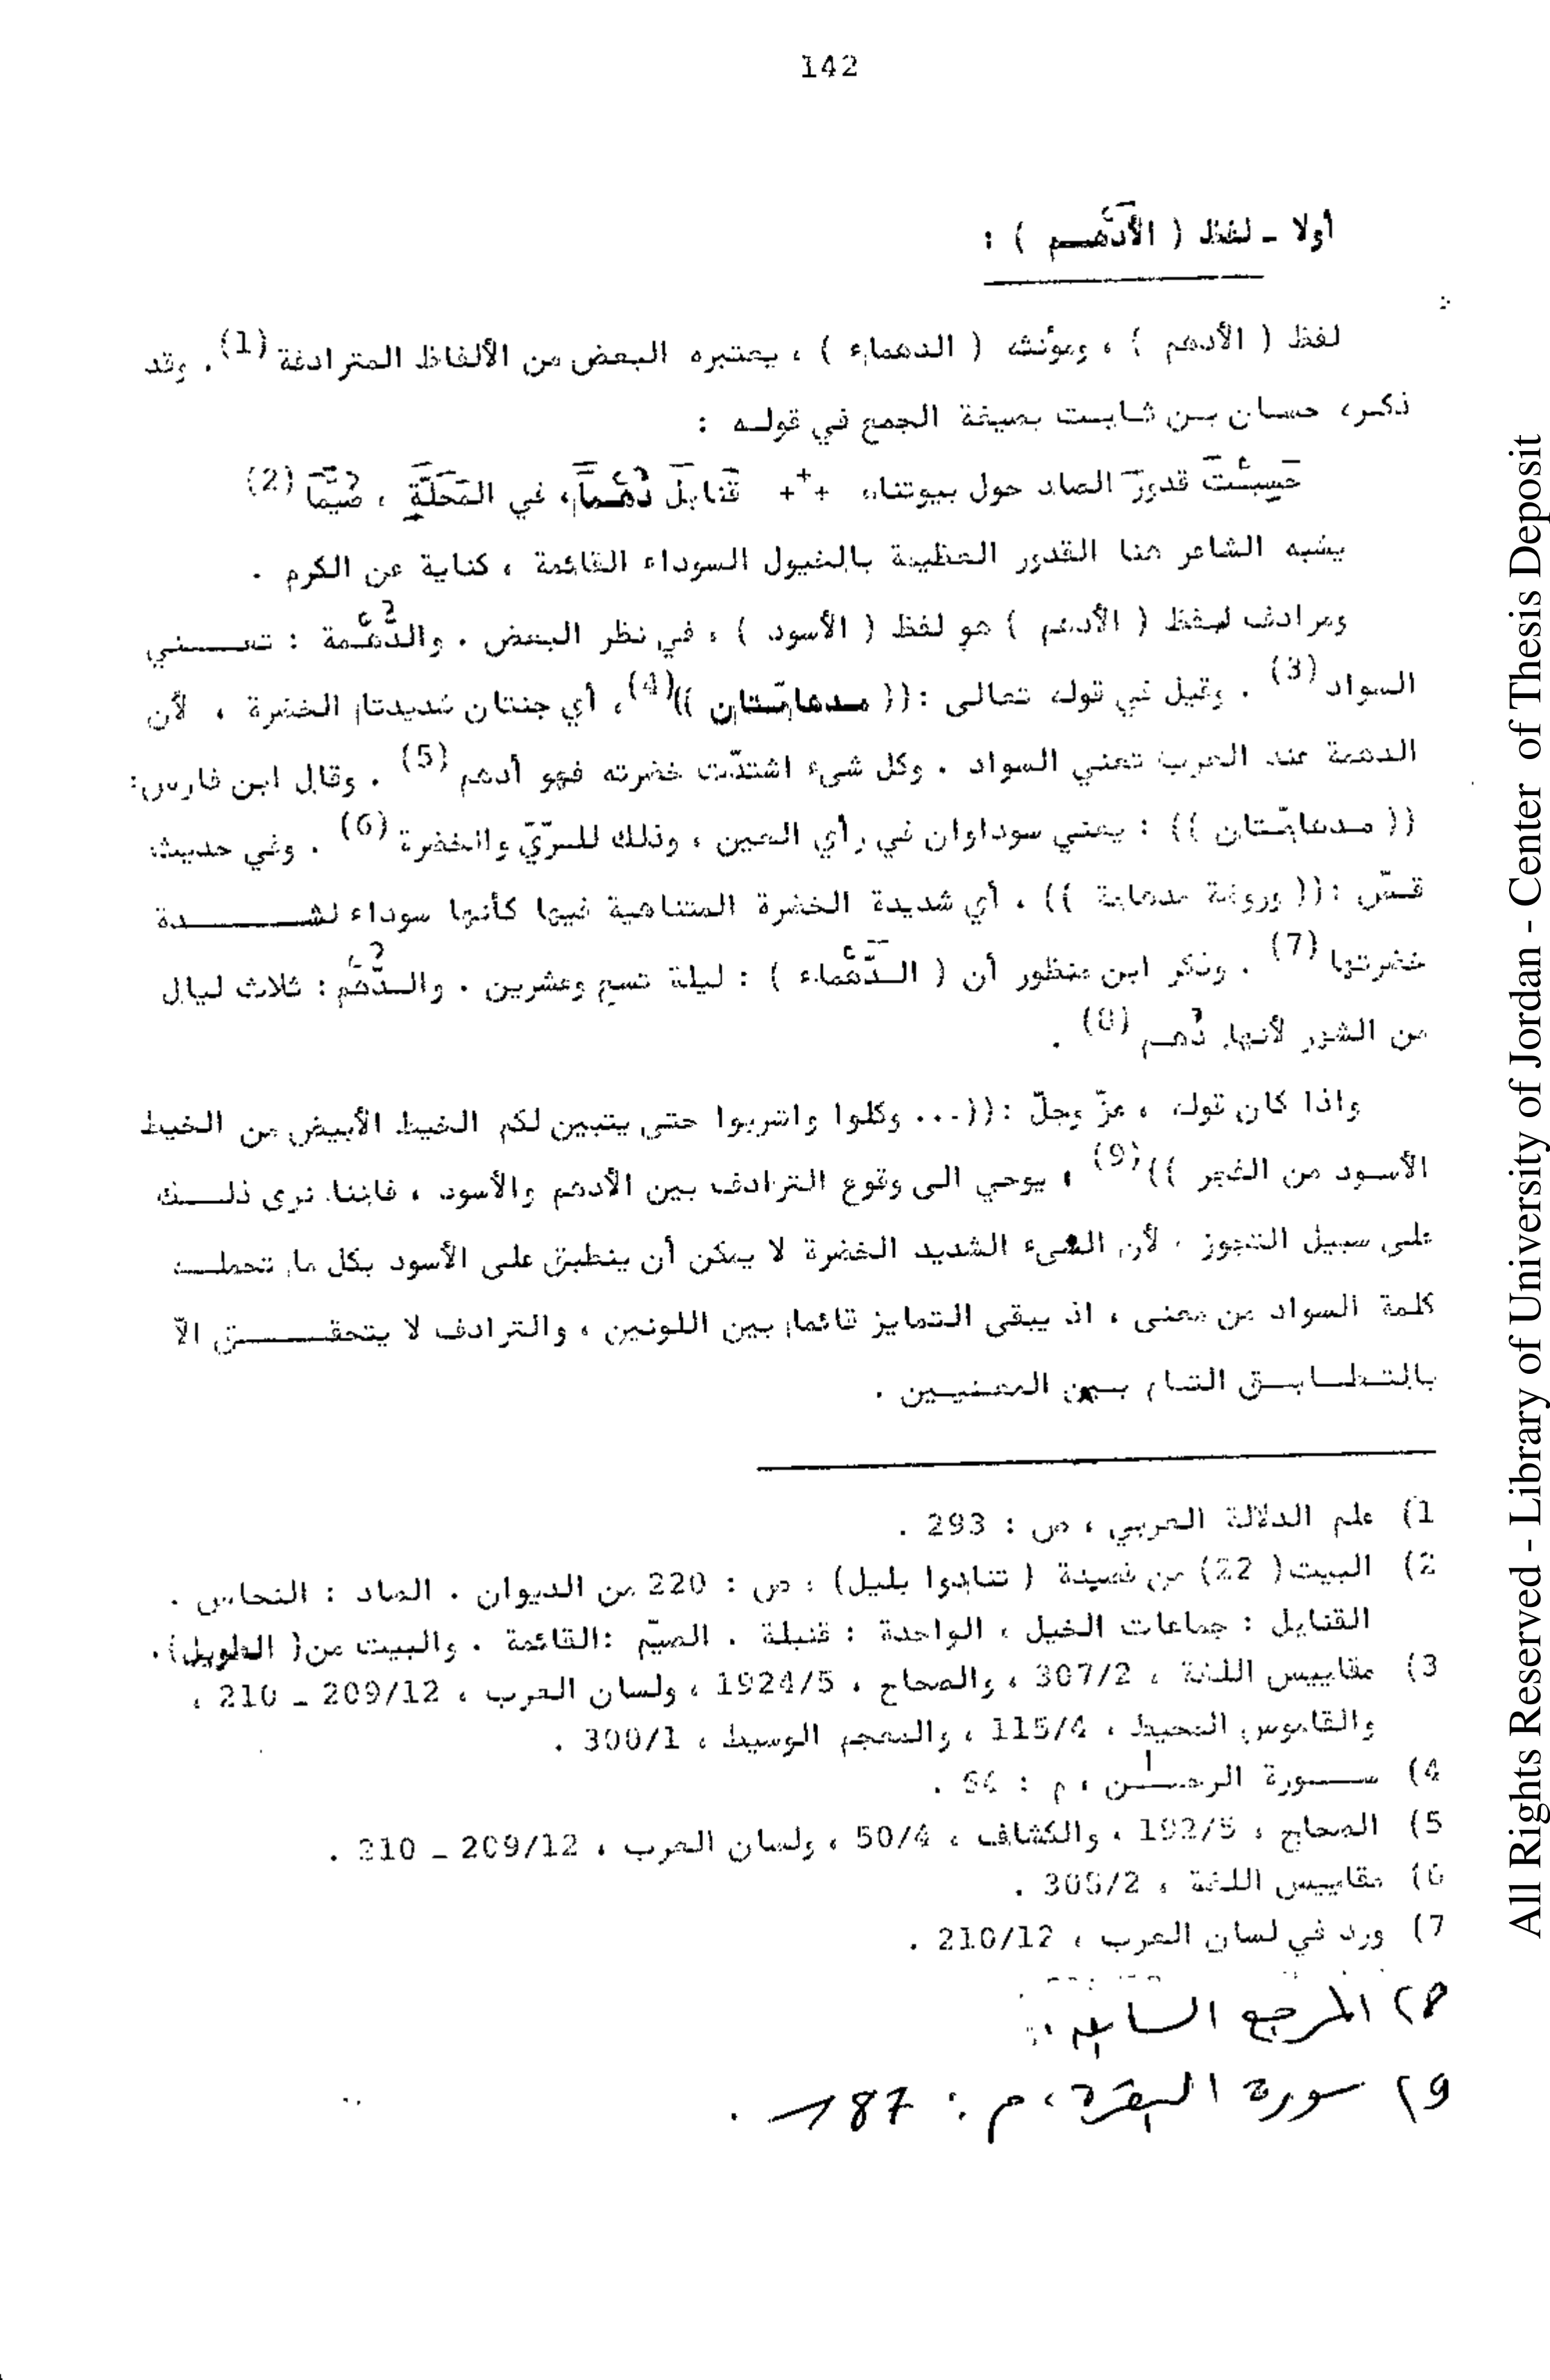 142
أولا - لفظ ( الأَدْهـم ) :
لفظ ( الأدهم ) ، ومؤنثه ( الدهماء ) ، يعتبره البعض من الألفاظ المترادفة (1) . وقد
ذكره حسان بـن ثـابـت بصيغة الجمع في قولـه :
حَسِبْتَ قدورَ الصاد حول بيوتنا +++ قَنابلَ دُهْماً، في المَحَلَّةِ ، صُيَّما (2)
يشبه الشاعر هنا القدور العظيمة بالخيول السوداء القائمة ، كناية عن الكرم .
ومرادف لـفظ ( الأدهم ) هو لفظ ( الأسود ) ، في نظر البعض . والدُّهْـمة : تعـــني
السواد (3) . وقيل في قوله تعالى : (( مـدهامّـتان )) (4) ، أي جنتان شديدتا الخضرة ، لأن
الدهمة عند العرب تعني السواد . وكل شيء اشتدّت خضرته فهو أدهم (5) . وقال ابن فارس:
(( مـدهامّـتان )) : يعني سوداوان في رأي العين ، وذلك للـرّيّ والخضرة (6) . وفي حديث
قـسّ : (( وروضة مدهامة )) ، أي شديدة الخضرة المتناهية فيها كأنها سوداء لشـــــدة
خضرتها (7) . وذكر ابن منظور أن ( الـدَّهْماء ) : ليلة تسع وعشرين . والـدُّهْم : ثلاث ليال
من الشهر لأنها دُهـم (8) .
واذا كان قوله ، عزّ وجلّ : ((... وكلوا واشربوا حتى يتبين لكم الخيط الأبيض من الخيط
الأسـود من الفجر )) (9) ، يوحي الى وقوع الترادف بين الأدهم والأسود ، فاننا نرى ذلـــك
على سبيل التجوز ، لأن الشيء الشديد الخضرة لا يمكن أن ينطبق على الأسود بكل ما تحملـــه
كلمة السواد من معنى ، اذ يبقى التمايز قائما بين اللونين ، والترادف لا يتحقـــــق الاّ
بالتـطـابـق التـام بـين المعـنيـين .
1) علم الدلالة العربي ، ص : 293 .
2) البيت( 22) من قصيدة ( تنادوا بليل) ، ص : 220 من الديوان . الصاد : النحاس .
القنابل : جماعات الخيل ، الواحدة : قنبلة . الصيّم :القائمة . والبيت من( الطويل).
3) مقاييس اللغة ، 307/2 ، والصحاح ، 1924/5 ، ولسان العرب ، 209/12 - 210 ،
والقاموس المحيط ، 115/4 ، والمعجم الوسيط ، 300/1 .
4) ســـورة الرحمـٰن ، م : 64 .
5) الصحاح ، 192/5 ، والكشاف ، 50/4 ، ولسان العرب ، 209/12 - 210 .
6) مقاييس اللغة ، /2 .
7) ورد في لسان العرب ، 210/12 .
8) المرجع السابق .
9) سورة البقرة ، م : 187 .
All Rights Reserved - Library of University of Jordan - Center of Thesis Deposit